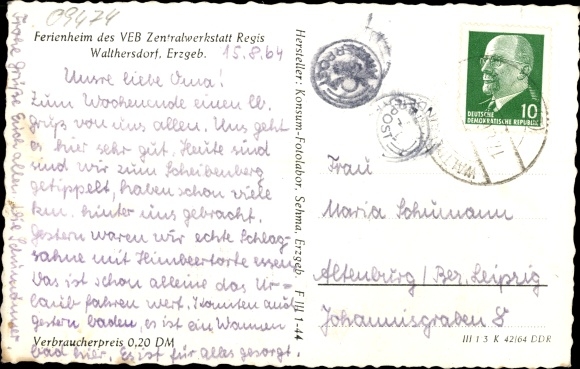 09474
Ferienheim des VEB Zentralwerkstatt Regis
Walthersdorf, Erzgeb.
15.8.64
Unsre liebe Oma!
Zum Wochenende einen lb.
Gruß von uns allen. Uns geht
es hier sehr gut. Heute sind
sind wir zum Scheibenberg
getippelt, haben schon viele
km. hinter uns gebracht.
Gestern waren wir echte Schlag-
sahne mit Himbeertorte essen.
Das ist schon alleine das Ur-
laub fahren wert. Konnten auch
gestern baden, es ist ein Wannen
bad hier. Es ist für alles gesorgt.
Verbraucherpreis 0,20 DM
Hersteller: Konsum-Fotolabor, Sehma, Erzgeb. F III 1-44
DEUTSCHE
DEMOKRATISCHE REPUBLIK
10
Frau
Maria Schumann
Altenburg/Bez. Leipzig
Johannisgraben 8
III 1 3 K 42/64 DDR